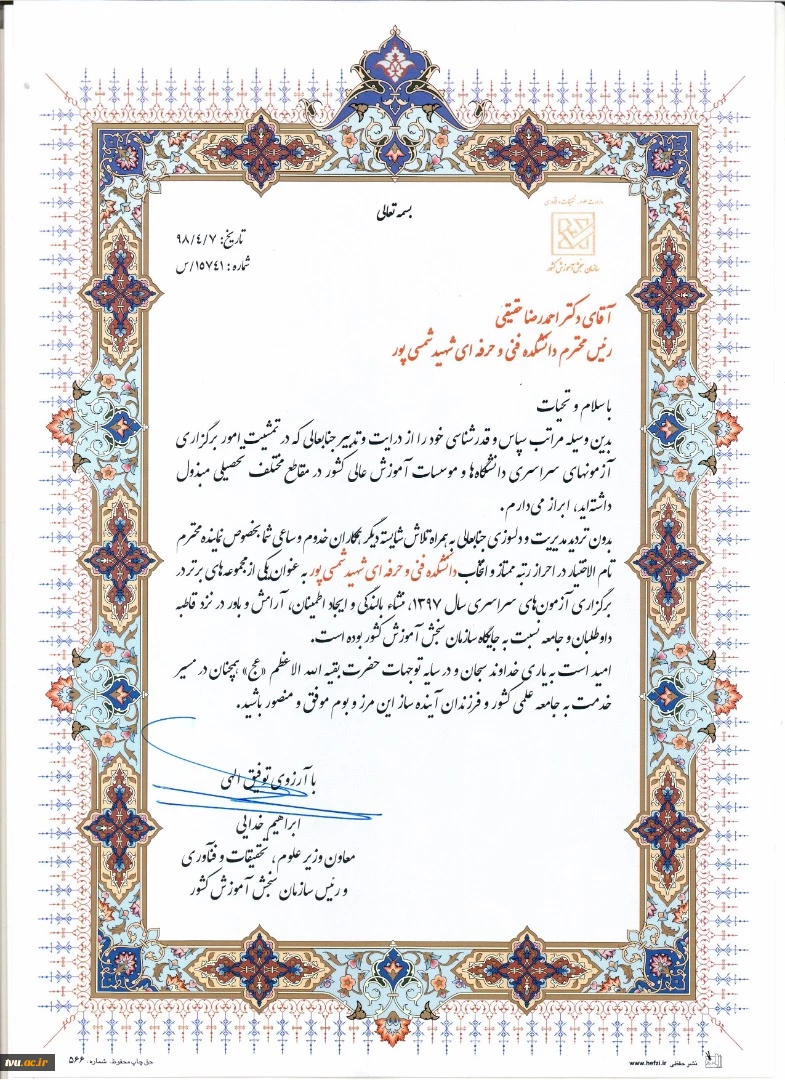 بسمه تعالی
وزارت علوم، تحقیقات و فناوری
سازمان سنجش آموزش کشور
تاریخ: ۹۸/٤/۷
شماره: ۱۵۷٤۱/س
آقای دکتر احمدرضا حقیقی
رئیس محترم دانشکده فنی و حرفه ای شهید شمسی پور
با سلام و تحیات
بدین وسیله مراتب سپاس و قدرشناسی خود را از درایت و تدبیر جنابعالی که در تمشیت امور برگزاری
آزمونهای سراسری دانشگاه‌ها و موسسات آموزش عالی کشور در مقاطع مختلف تحصیلی مبذول
داشته‌اید، ابراز می‌دارم.
بدون تردید مدیریت و دلسوزی جنابعالی به همراه تلاش شایسته دیگر همکاران خدوم و ساعی شما بخصوص نماینده محترم
تام الاختیار در احراز رتبه ممتاز و انتخاب دانشکده فنی و حرفه ای شهید شمسی پور به عنوان یکی از مجموعه های برتر در
برگزاری آزمون‌های سراسری سال ۱۳۹۷، منشاء بالندگی و ایجاد اطمینان، آرامش و باور در نزد قاطبه
داوطلبان و جامعه نسبت به جایگاه سازمان سنجش آموزش کشور بوده است.
امید است به یاری خداوند سبحان و در سایه توجهات حضرت بقیه الله الاعظم «عج» همچنان در مسیر
خدمت به جامعه علمی کشور و فرزندان آینده ساز این مرز و بوم موفق و منصور باشید.
با آرزوی توفیق الهی
ابراهیم خدایی
معاون وزیر علوم، تحقیقات و فنآوری
و رئیس سازمان سنجش آموزش کشور
نشر حفظی www.hefzi.ir
حق چاپ محفوظ. شماره: ۵۶۶
tvu.ac.ir